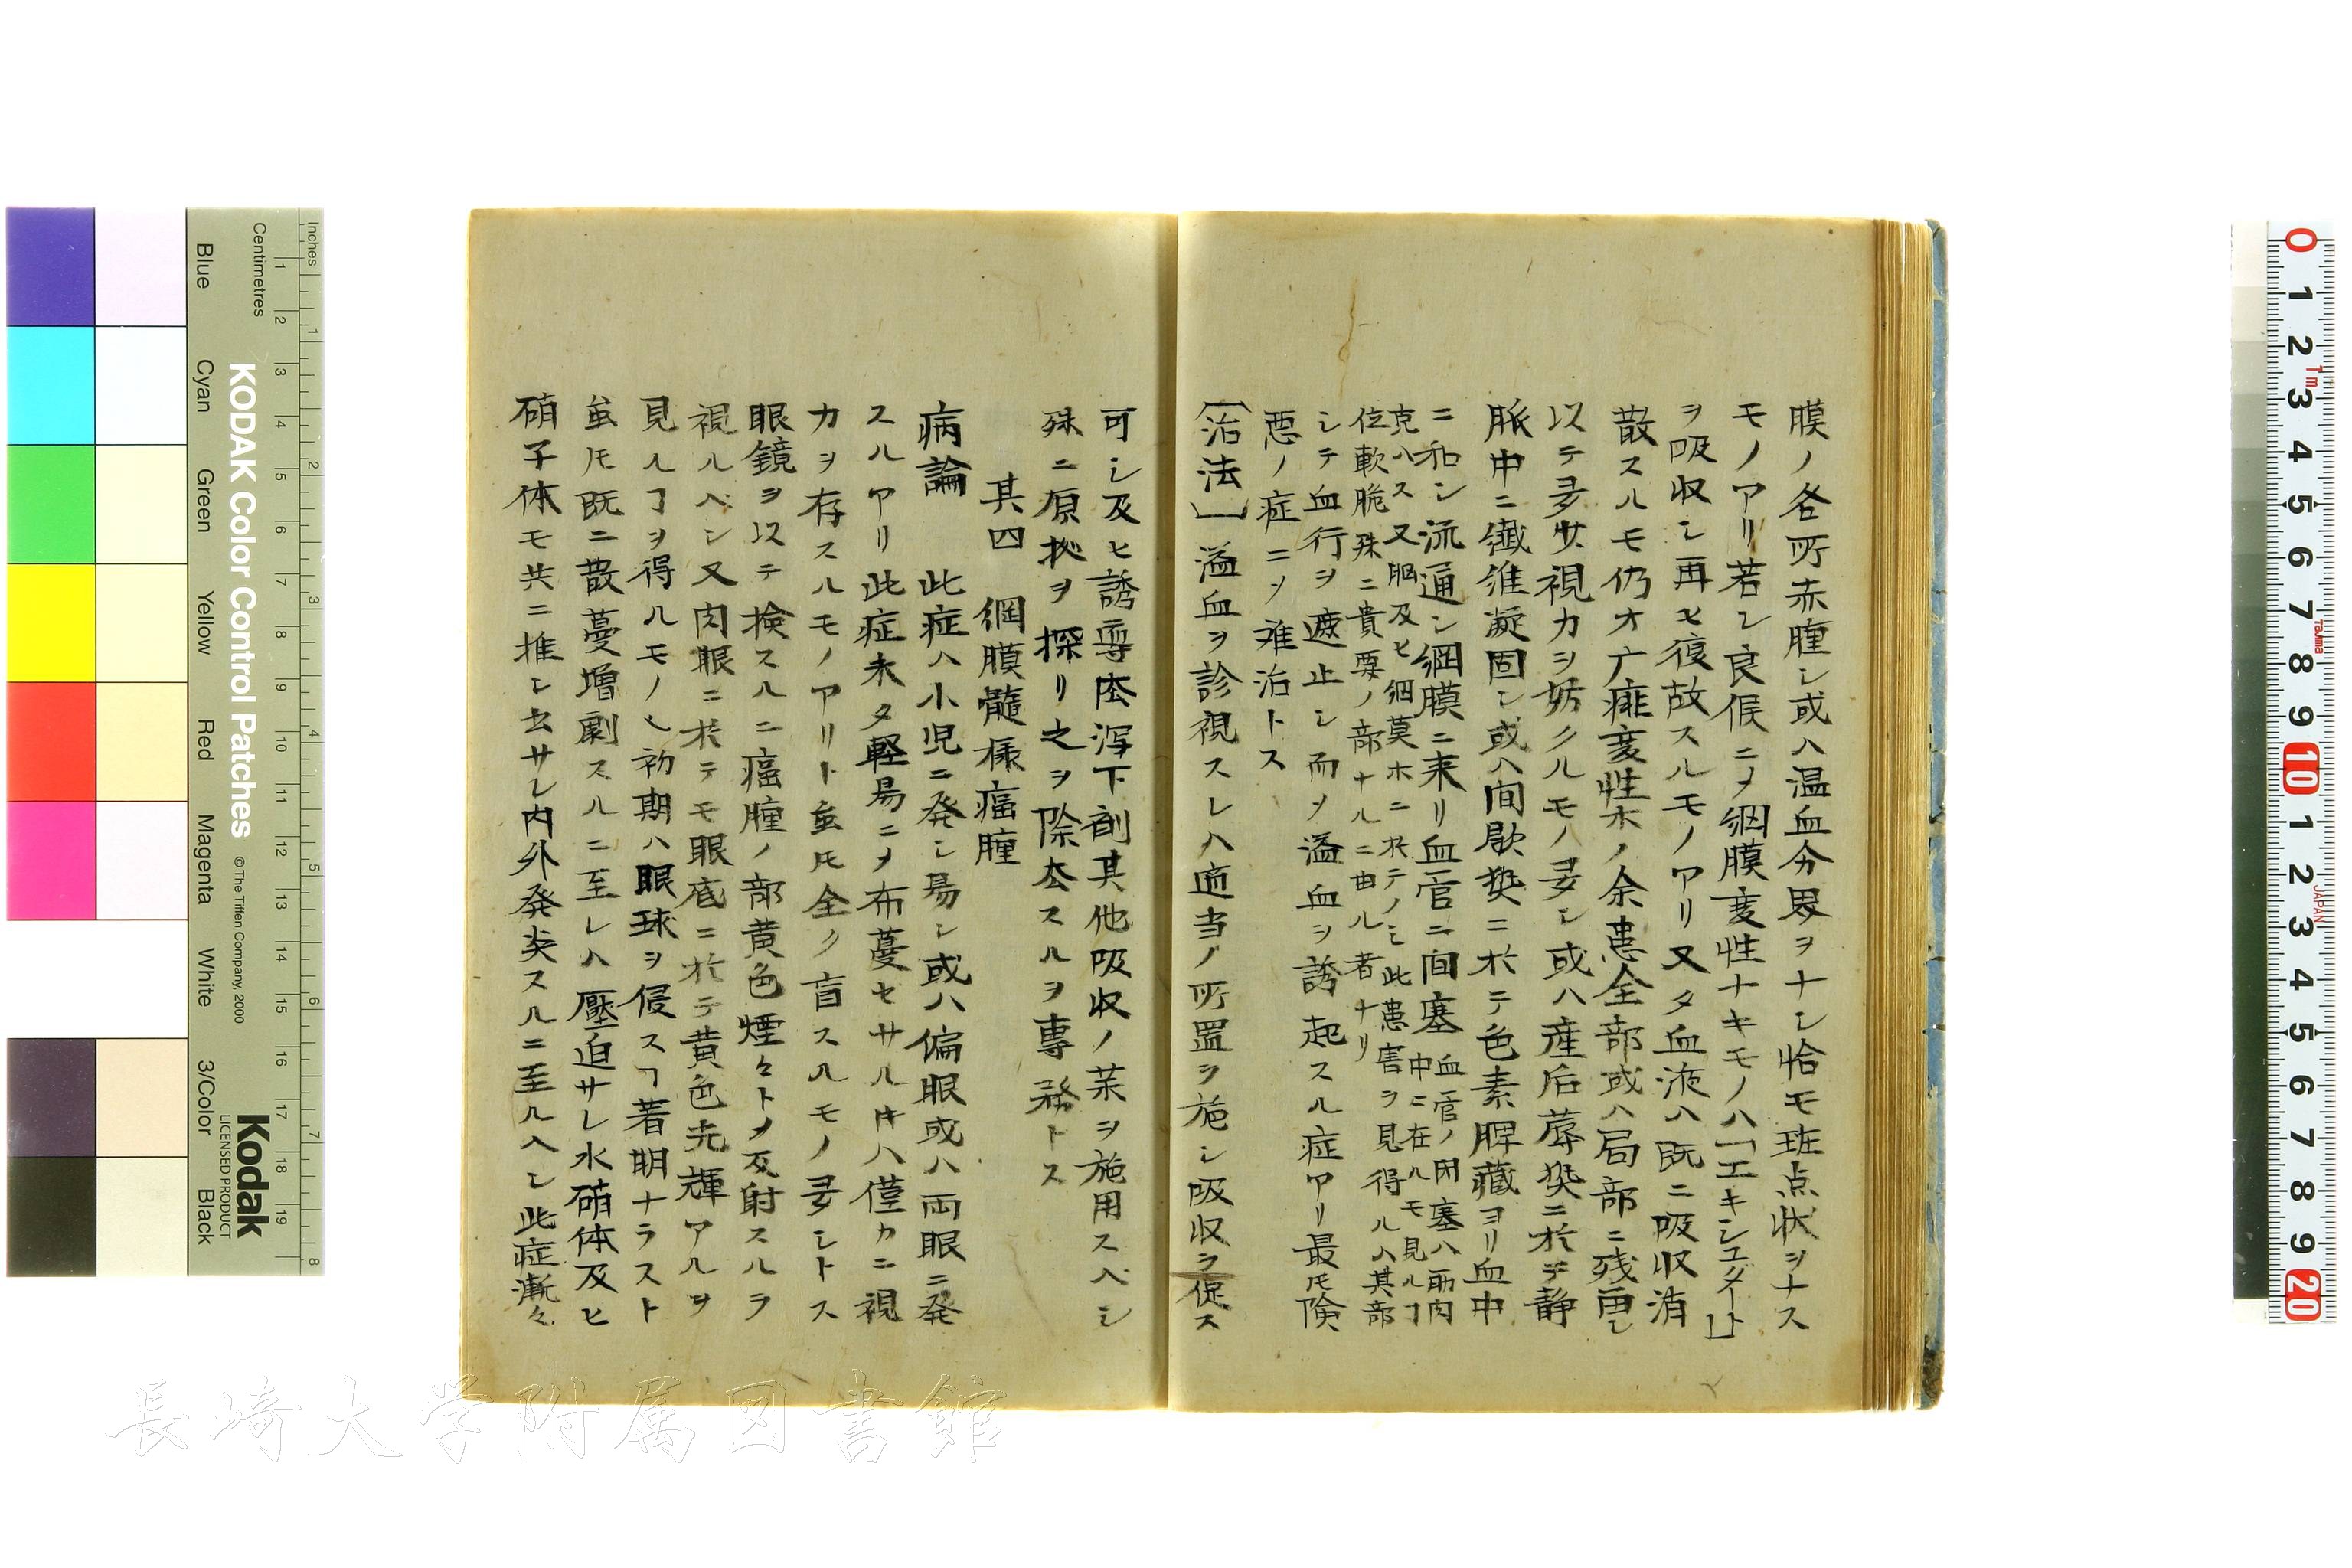 膜ノ各所赤腫シ或ハ温血分界ヲナシ恰モ斑点状ヲナス
モノアリ若シ良候ニメ網膜変性ナキモノハ「エキシユダート」
ヲ吸収シ再ヒ復故スルモノアリ又タ血液ハ既ニ吸収消
散スルモ仍オ广痱変性ホノ余患全部或ハ局部ニ残畄シ
以テ多少視力ヲ妨クルモノ多シ或ハ産后蓐𤍠ニ於テ静
脈中ニ繊維凝固シ或ハ間歇𤍠ニ於テ色素脾蔵ヨリ血中
ニ和シ流通シ網膜ニ来リ血管ニ固塞
血管ノ困塞ハ筋肉
中ニ在ルモ見ルヿ
克ハス又脳及ヒ網莫ホニ於テノミ此患害ヲ見得ルハ其部
位軟脆殊ニ貴要ノ部ナルニ由ル者ナリ
シテ血行ヲ遮止シ而メ溢血ヲ誘起スル症アリ最モ険
悪ノ症ニメ难治トス
〔治法〕溢血ヲ診視スレハ適当ノ所置ヲ施シ吸収ヲ促ス
可シ及ヒ誘導峻瀉下剤其他吸収ノ茱ヲ施用スヘシ
殊ニ原拠ヲ探リ之ヲ除去スルヲ專務トス
其四 網膜髓様瘟腫
病論 此症ハ小児ニ発シ易シ或ハ偏眼或ハ両眼ニ発
スルアリ此症未タ軽易ニメ布蔓セサルキハ僅カニ視
力ヲ存スルモノアリト虽𪜈全ク盲スルモノ多シトス
眼鏡ヲ以テ検スルニ瘟腫ノ部黄色煙々トメ反射スルヲ
視ルベシ又肉眼ニ於テモ眼底ニ於テ黄色光輝アルヲ
見ルヿヲ得ルモノミ初期ハ眼球ヲ侵スヿ著明ナラスト
虽𪜈既ニ散蔓増劇スルニ至レハ壓迫サレ水硝体及ヒ
硝子体モ共ニ推シ去サレ内外発炎スルニ至ルヘシ此症漸々
KODAK Color Control Patches
© The Tiffen Company, 2000
Kodak
LICENSED PRODUCT
Inches
Centimetres
Blue
Cyan
Green
Yellow
Red
Magenta
White
3/Color
Black
長崎大学附属図書館